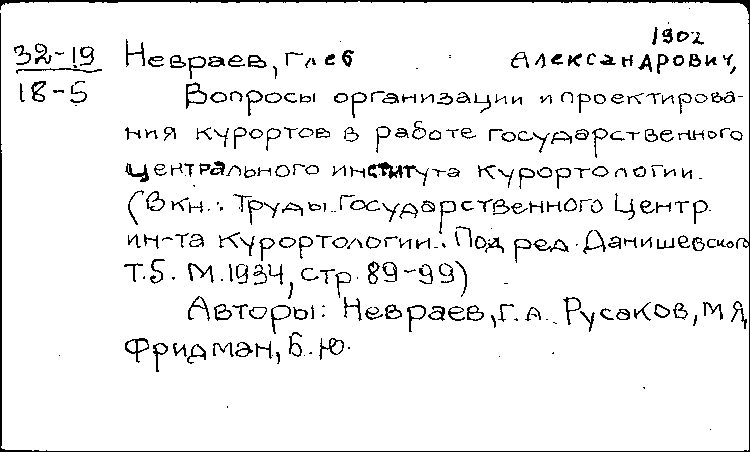 1902
32-19 Невраев, Глеб Александрович,
18-5 Вопросы организации и проектирова-
ния курортов в работе государственного
центрального института курортологии.
(В кн.: Труды Государственного Центр.
ин-та курортологии. Под ред. Данишевского
Т.5. М. 1934, стр. 89-99)
Авторы: Невраев, Г.А. Русаков, М Я,
Фридман, Б.Ю.